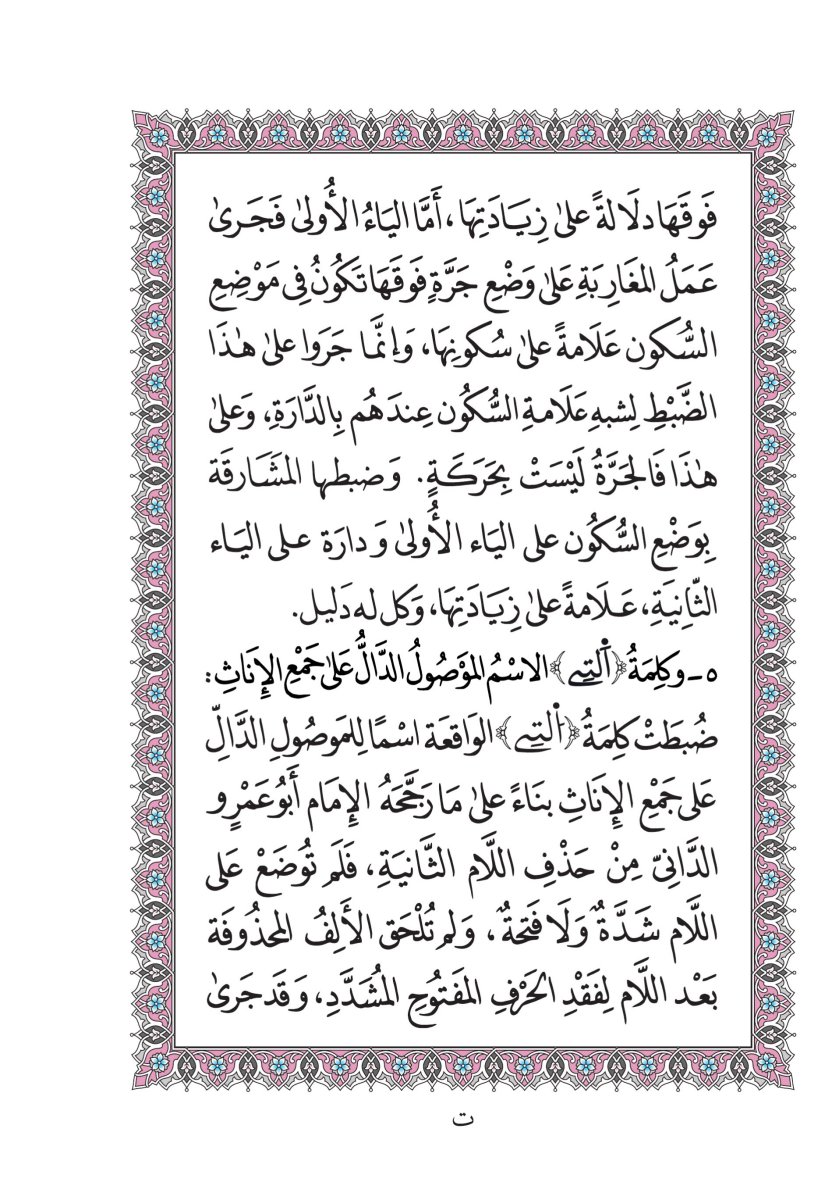 فَوقَهَا دلَالةً علىٰ زِيَادَتِهَا، أَمَّا اليَاءُ الأُولىٰ فَجَرىٰ
عَمَلُ المغَارِبَةِ عَلىٰ وَضْعِ جَرَّةٍ فَوقَهَا تَكُونُ فِى مَوْضِعِ
السُّكون عَلَامةً علىٰ سُكونِهَا، وَإنَّما جَرَوا علىٰ هٰذَا
الضَّبْطِ لِشبهِ عَلَامةِ السُّكُون عِندَهُم بِالدَّارَةِ، وَعَلىٰ
هٰذَا فَالجَرَّةُ لَيْسَتْ بِحَرَكَةٍ. وَضبطها المشَارقَة
بِوَضْعِ السُّكُون على اليَاء الأُولىٰ وَدارَة على اليَاء
الثَّانِيَةِ، عَلَامةً علىٰ زِيَادَتِهَا، وَكل له دَليل.
٥ - وكلِمَةُ ﴿اْلتِے﴾ الاسْمُ المَوْصُولُ الدَّالُّ عَلىٰ جَمْعِ الإِنَاثِ:
ضُبطَتْ كلِمَةُ ﴿اْلتِے﴾ الوَاقعَة اسْمًا لِلمَوصُولِ الدَّالِّ
عَلى جَمْعِ الإِنَاثِ بنَاءً علىٰ مَا رَجَّحَهُ الإِمَام أَبُو عَمْرٍو
الدَّانِىّ مِنْ حَذْفِ اللَّام الثَّانيَةِ، فَلَم تُوضَعْ عَلى
اللَّام شَدَّةٌ وَلَا فَتحةٌ، وَلم تُلْحَق الأَلِفُ المحذُوفَة
بَعْد اللَّام لِفَقْدِ الحَرْفِ المفتُوحِ المُشَدَّدِ، وَقَد جَرىٰ
ت